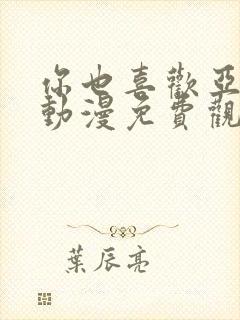 你也喜歡亞
動漫免費觀
葉辰亮